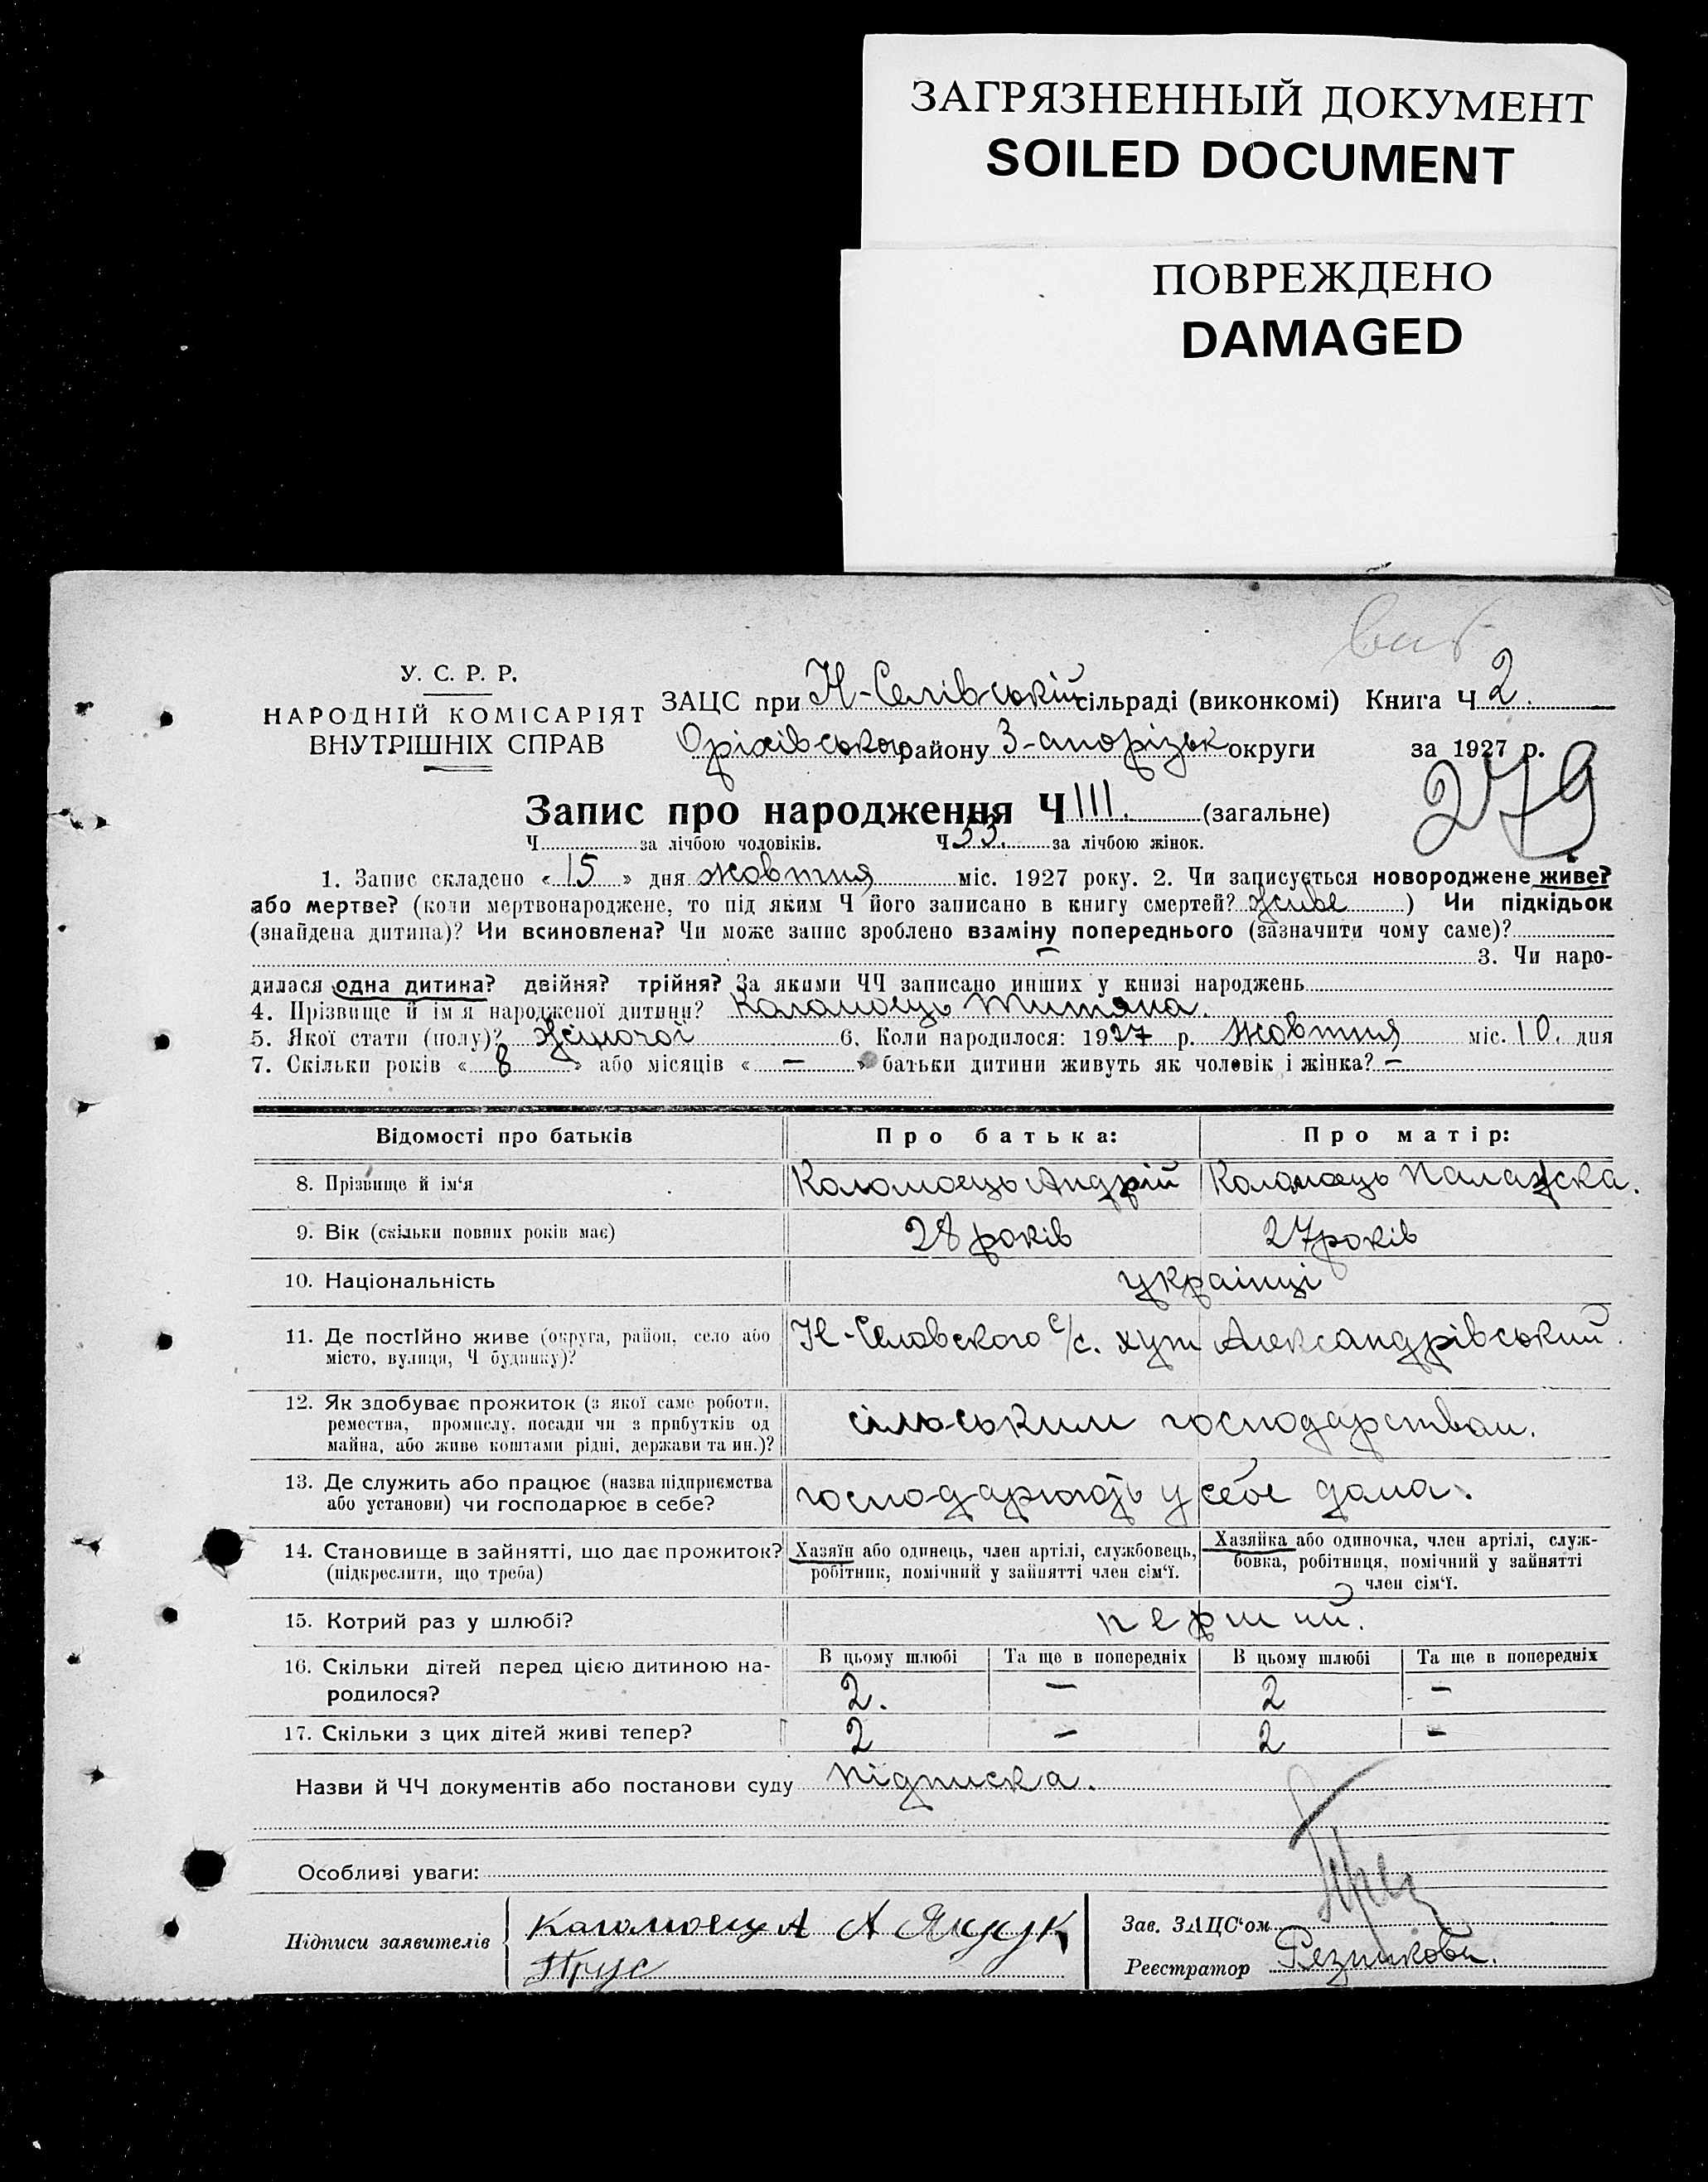 ЗАГРЯЗНЕННЫЙ ДОКУМЕНТ
SOILED DOCUMENT
ПОВРЕЖДЕНО
DAMAGED
У. С. Р. Р.
НАРОДНІЙ КОМІСАРІЯТ
ВНУТРІШНІХ СПРАВ
ЗАЦС при Н-Селівській сільраді (виконкомі) Книга Ч 2.
Оріхівського району З-апорізьк округи за 1927 р.
279
Запис про народження Ч 111. (загальне)
Ч за лічбою чоловіків. Ч 53. за лічбою жінок.
1. Запис складено « 15 » дня жовтня міс. 1927 року. 2. Чи записується новороджене живе?
або мертве? (коли мертвонароджене, то під яким Ч його записано в книгу смертей? Живе ) Чи підкідьок
(знайдена дитина)? Чи всиновлена? Чи може запис зроблено взаміну попереднього (зазначити чому саме)?
3. Чи наро-
дилася одна дитина? двійня? трійня? За якими ЧЧ записано инших у книзі народжень
4. Прізвище й ім'я народженої дитини? Коломоець Титяна.
5. Якої стати (полу)? Жіночої 6. Коли народилося: 1927 р. Жовтня міс. 10. дня
7. Скільки років « 8 » або місяців « — » батьки дитини живуть як чоловік і жінка? —
Відомості про батьків Про батька: Про матір:
8. Прізвище й ім'я Коломоець Андрій Коломоець Палажска.
9. Вік (скільки повних років має) 28 років 27 років
10. Національність українці
11. Де постійно живе (округа, район, село або Н-Селовского с/с. хут Александрівський.
місто, вулиця, Ч будинку)?
12. Як здобуває прожиток (з якої саме роботи,
ремества, промислу, посади чи з прибутків од сільським господарством.
майна, або живе коштами рідні, держави та ин.)?
13. Де служить або працює (назва підприємства господарюють у себе дома.
або установи) чи господарює в себе?
14. Становище в зайнятті, що дає прожиток? Хазяїн або одинець, член артілі, службовець, Хазяйка або одиночка, член артілі, служ-
(підкреслити, що треба) робітник, помічний у зайнятті член сім'ї. бовка, робітниця, помічний у зайнятті
член сім'ї.
15. Котрий раз у шлюбі? перший.
В цьому шлюбі Та ще в попередніх В цьому шлюбі Та ще в попередніх
16. Скільки дітей перед цією дитиною на-
родилося? 2. — 2 —
17. Скільки з цих дітей живі тепер? 2 — 2 —
Назви й ЧЧ документів або постанови суду підписка.
Особливі уваги:
Підписи заявителів Коломоец А
Прус
Зав. ЗАЦС'ом
Реєстратор Резникова.